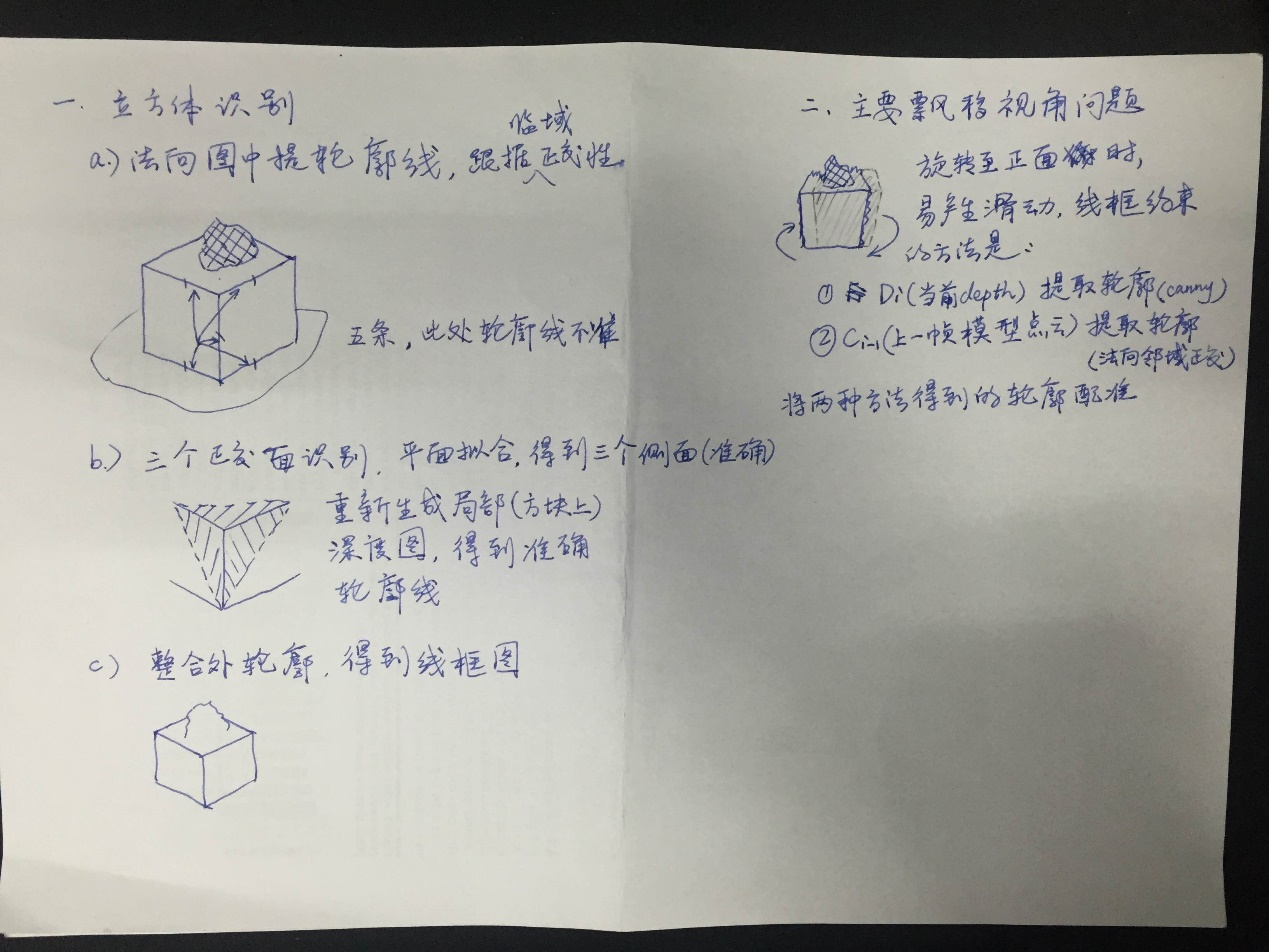 一. 立方体识别
a.) 法向图中提轮廓线, 跟据临域正交性.
五条, 此处轮廓线不准
b.) 三个正交面识别, 平面拟合, 得到三个侧面(准确)
重新生成局部(方块上)
深度图, 得到准确
轮廓线
c) 整合外轮廓, 得到线框图
二. 主要飘移视角问题
旋转至正面时,
易产生滑动, 线框约束
的方法是:
① Di(当前depth) 提取轮廓(canny)
② Ci-1(上一帧模型点云) 提取轮廓
(法向邻域正交)
将两种方法得到的轮廓配准